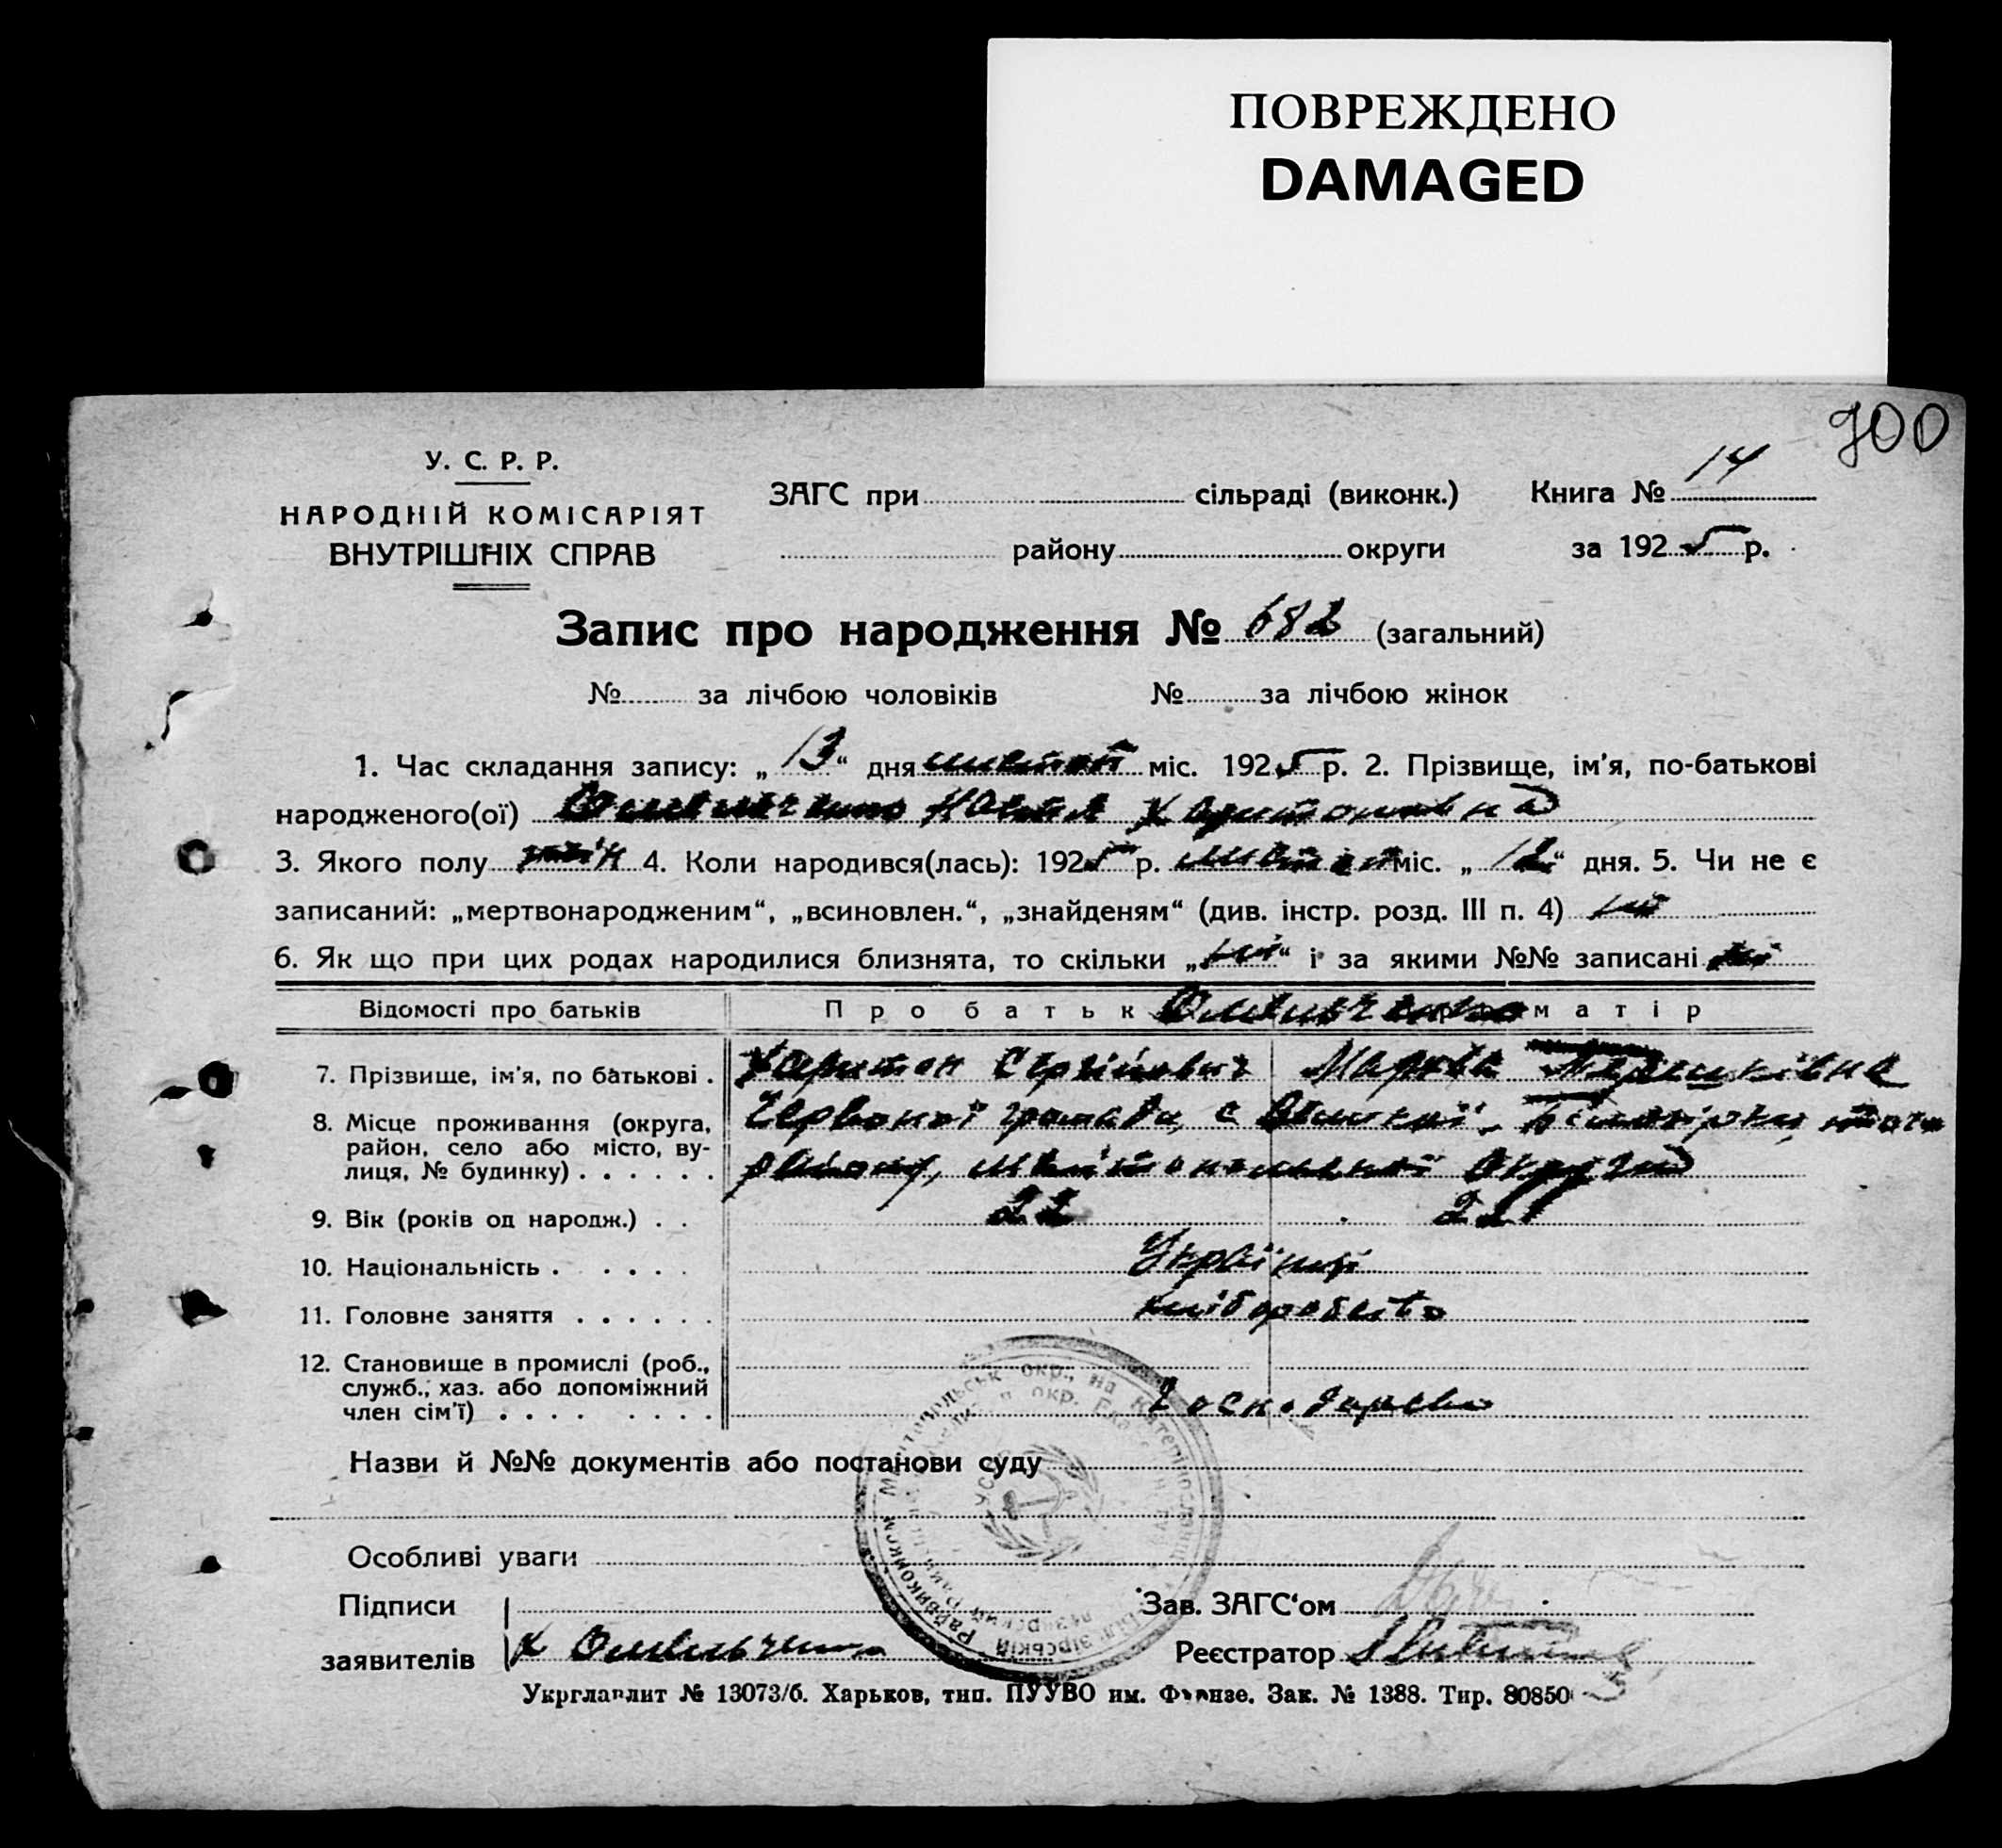 ПОВРЕЖДЕНО
DAMAGED
900
У. С. Р. Р.
НАРОДНІЙ КОМІСАРІЯТ
ВНУТРІШНІХ СПРАВ
ЗАГС при сільраді (виконк.) Книга № 14
району округи за 1925 р.
Запис про народження № 682 (загальний)
№ за лічбою чоловіків № за лічбою жінок
1. Час складання запису: „13“ дня міс. 1925 р. 2. Прізвище, ім'я, по-батькові
народженого(ої) Омельченко Харитоновна
3. Якого полу жін 4. Коли народився(лась): 1925 р. міс. „12“ дня. 5. Чи не є
записаний: „мертвонародженим“, „всиновлен.“, „знайденям“ (див. інстр. розд. III п. 4) ні
6. Як що при цих родах народилися близнята, то скільки „ні“ і за якими №№ записані ні
Відомості про батьків Про батьк Омельченко матір
7. Прізвище, ім'я, по батькові . Харитон Сергійович Марфа
8. Місце проживання (округа, Червоної громади, с
район, село або місто, ву-
лиця, № будинку) . . . . . . району, округи
9. Вік (років од народж.) . . 22 22
10. Національність . . . . . Українці
11. Головне заняття . . . . . . хліборобство
12. Становище в промислі (роб.,
служб., хаз. або допоміжний
член сім'ї) . . . . . . . .
Назви й №№ документів або постанови суду
Особливі уваги
Підписи Зав. ЗАГС'ом
заявителів Х Омельченко Реєстратор
Укрглавліт № 13073/6. Харьков, тип. ПУУВО им. Фрунзе. Зак. № 1388. Тир. 80850